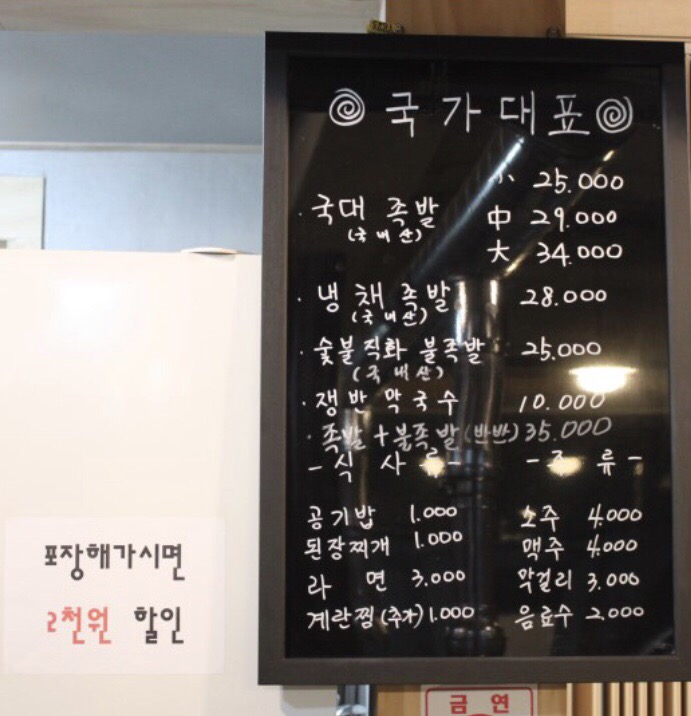 국가대표
小 25.000
· 국대 족발 中 29.000
(국내산)
大 34.000
· 냉채족발 28.000
(국내산)
· 숯불직화 불족발 25.000
(국내산)
· 쟁반막국수 10.000
· 족발+불족발(반반) 35.000
- 식 사류 - - 주 류 -
공기밥 1.000 소주 4.000
된장찌개 1.000 맥주 4.000
라 면 3.000 막걸리 3.000
계란찜(추가) 1.000 음료수 2.000
포장해가시면
2천원 할인
금 연